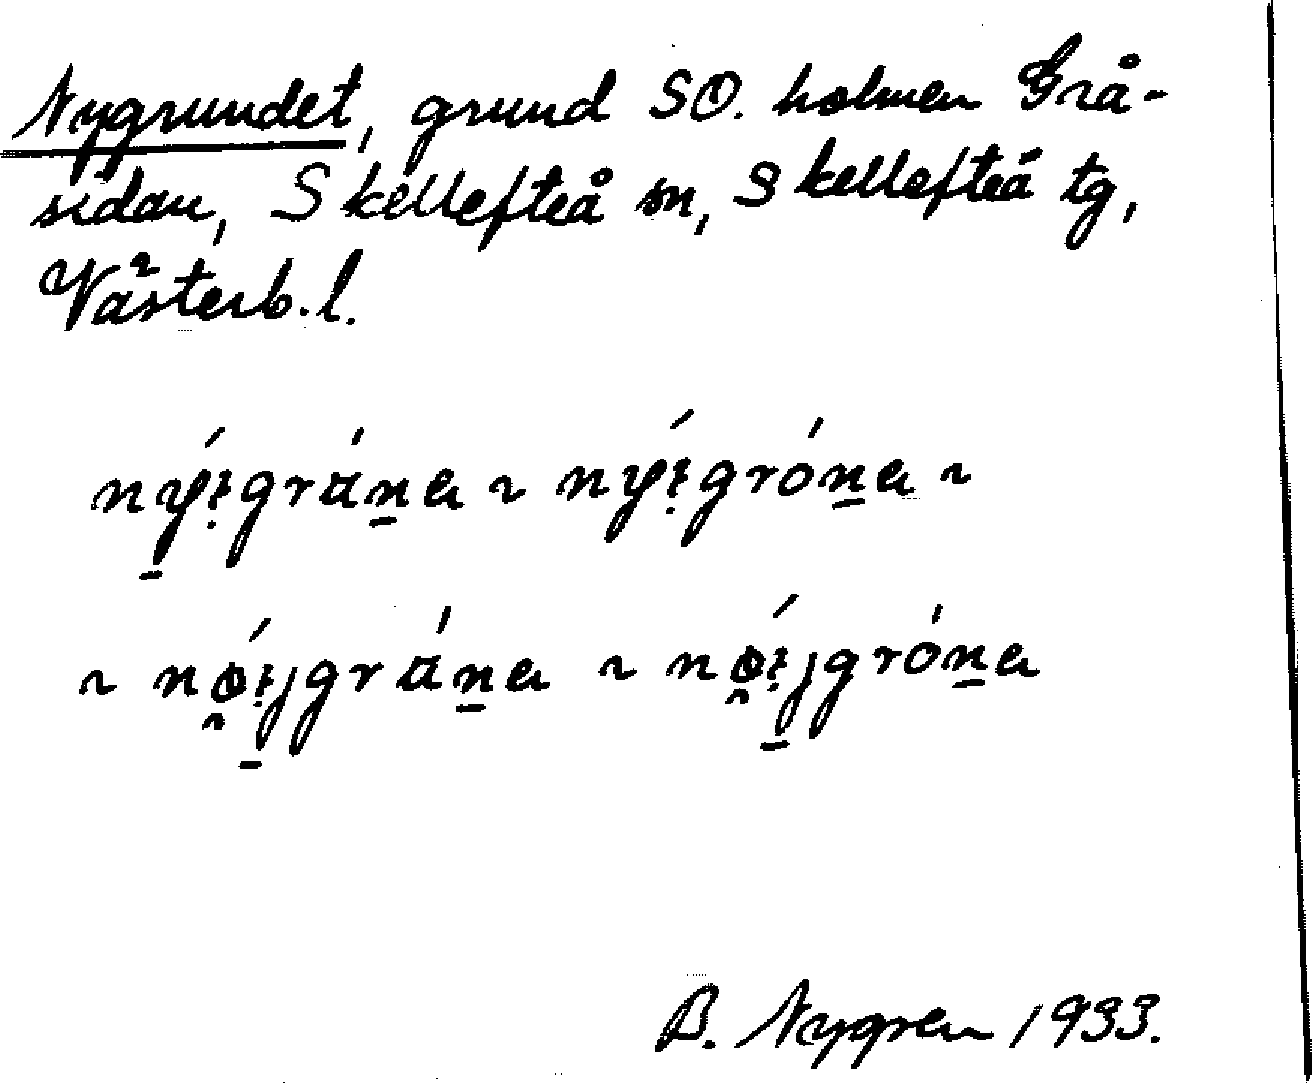 Nygrundet, grund SO. holmen Grå-
sidan, Skellefteå sn, Skellefteå tg,
Västerb. l.
ný̱ṭgrána ~ nýṭgróna ~
~ nø̂ṭjgrána ~ nø̂ṭjgróna
B. Nygren 1933.